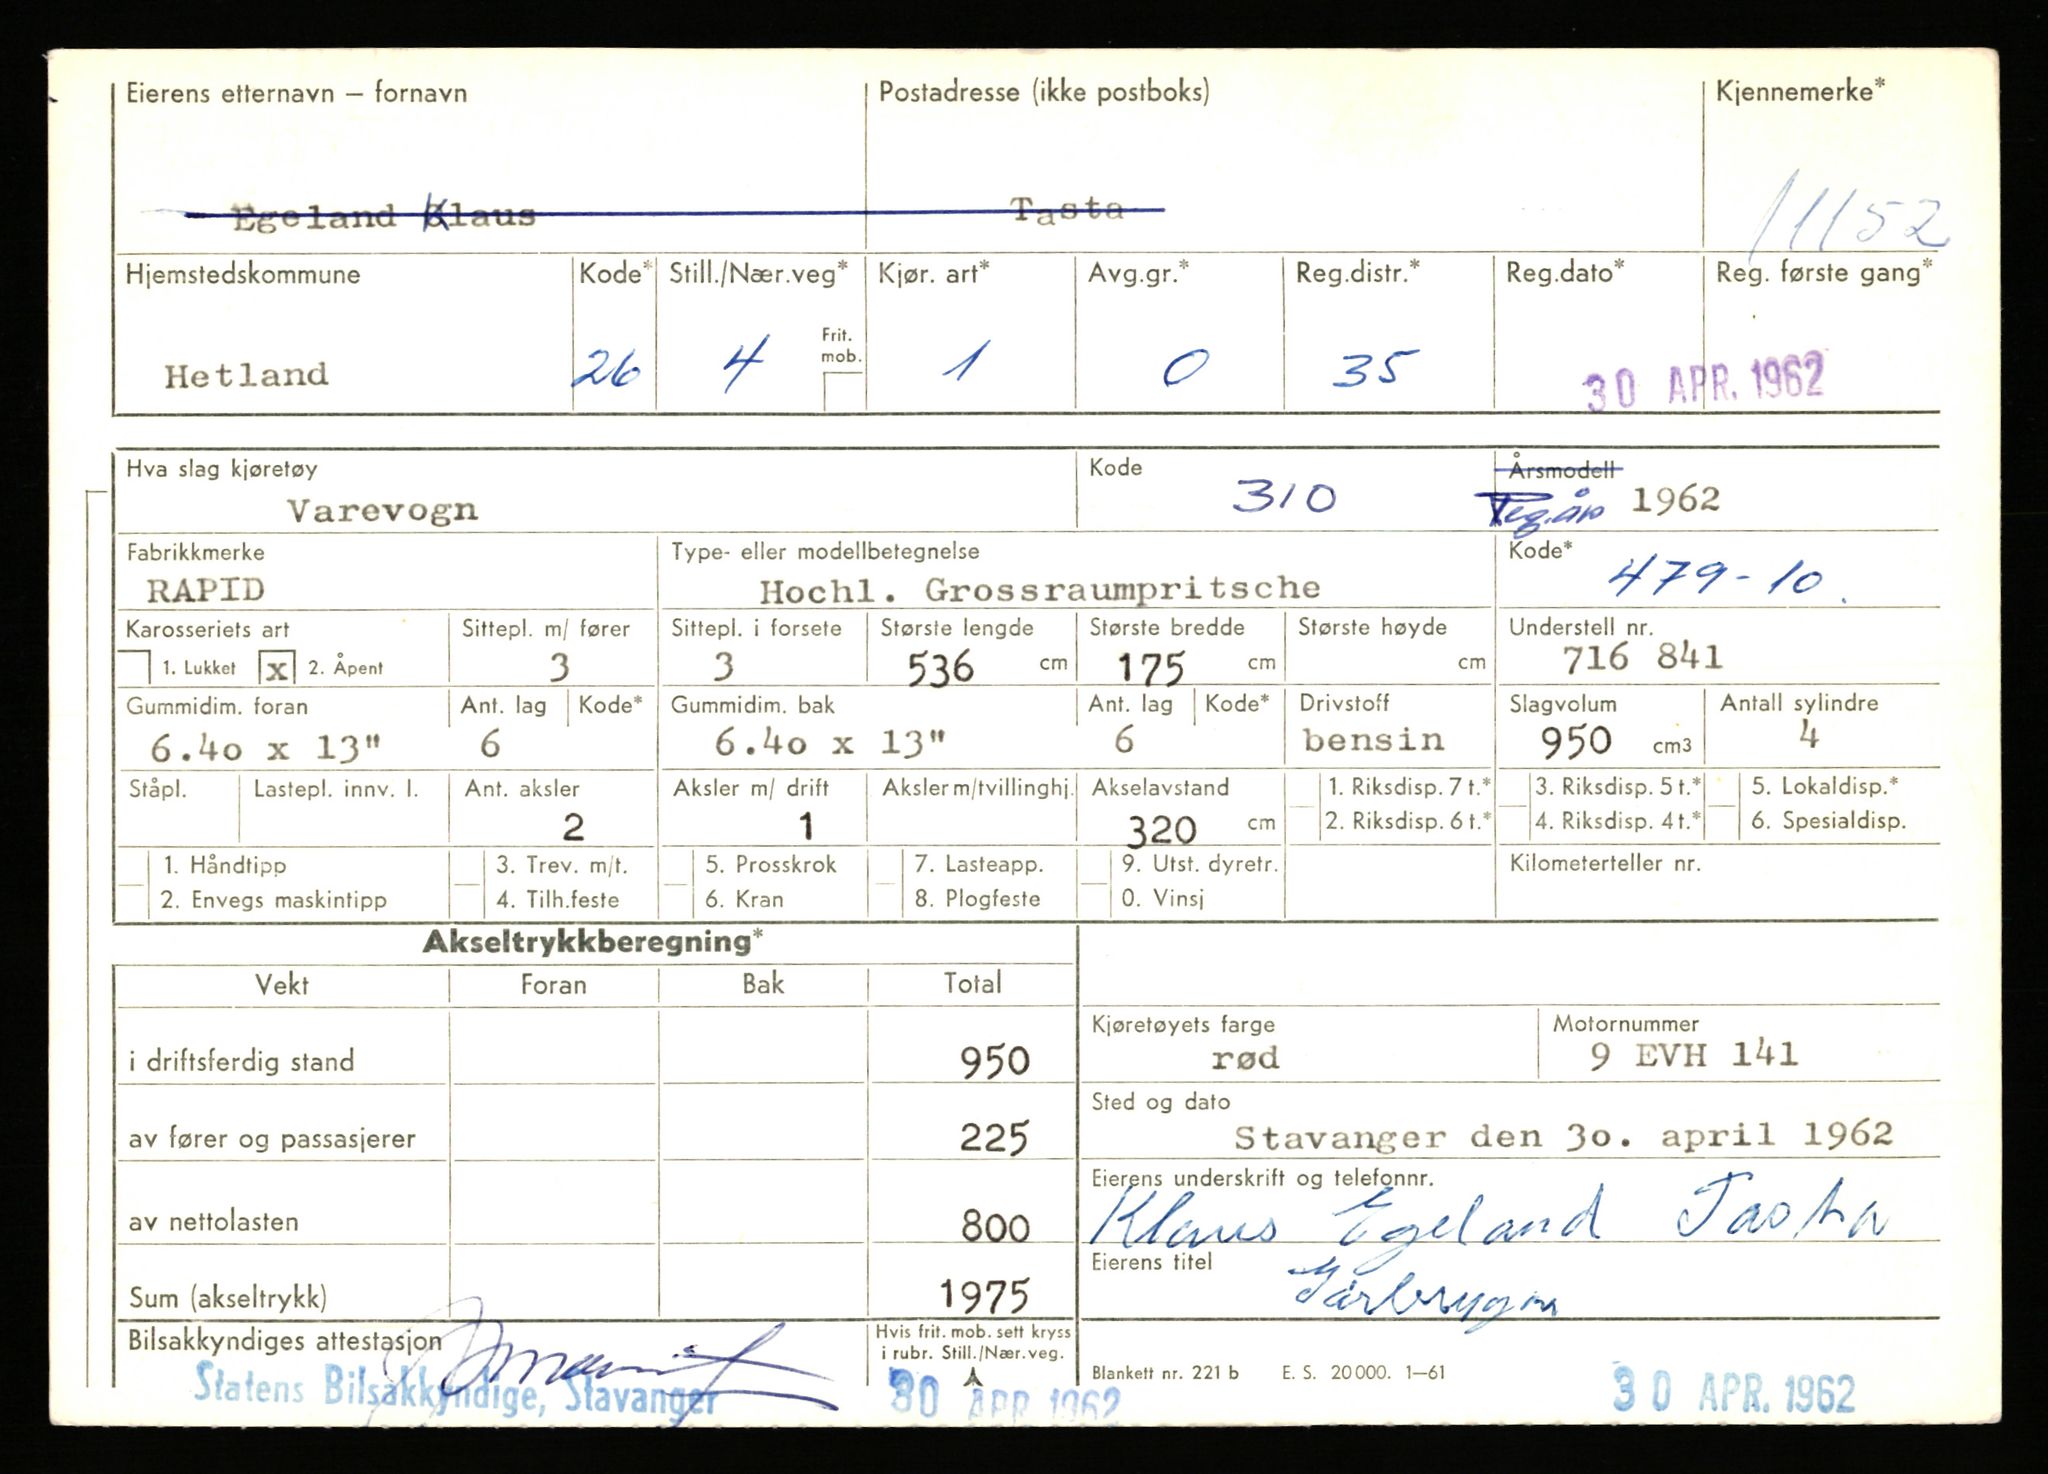 Eierens etternavn – fornavn Postadresse (ikke postboks) Kjennemerke*
Egeland Klaus Tasta 11152
Hjemstedskommune Kode* Still./Nær.veg* Kjør. art* Avg.gr.* Reg.distr.* Reg.dato* Reg. første gang*
Frit.
mob.
Hetland 26 4 1 0 35 30 APR. 1962
Hva slag kjøretøy Kode Årsmodell
Varevogn 310 Reg.år 1962
Fabrikkmerke Type- eller modellbetegnelse Kode*
RAPID Hochl. Grossraumpritsche 479-10.
Karosseriets art Sittepl. m/ fører Sittepl. i forsete Største lengde Største bredde Største høyde Understell nr.
1. Lukket x 2. Åpent 3 3 536 cm 175 cm cm 716 841
Gummidim. foran Ant. lag Kode* Gummidim. bak Ant. lag Kode* Drivstoff Slagvolum Antall sylindre
6.4o x 13" 6 6.4o x 13" 6 bensin 950 cm3 4
Ståpl. Lastepl. innv. l. Ant. aksler Aksler m/ drift Aksler m/tvillinghj. Akselavstand 1. Riksdisp. 7 t.* 3. Riksdisp. 5 t.* 5. Lokaldisp.*
2 1 320 cm 2. Riksdisp. 6 t.* 4. Riksdisp. 4 t.* 6. Spesialdisp.
1. Håndtipp 3. Trev. m/t. 5. Prosskrok 7. Lasteapp. 9. Utst. dyretr. Kilometerteller nr.
2. Envegs maskintipp 4. Tilh.feste 6. Kran 8. Plogfeste 0. Vinsj
Akseltrykkberegning*
Vekt Foran Bak Total
Kjøretøyets farge Motornummer
i driftsferdig stand 950 rød 9 EVH 141
Sted og dato
av fører og passasjerer 225 Stavanger den 3o. april 1962
Eierens underskrift og telefonnr.
av nettolasten 800 Klaus Egeland Tasta
Eierens titel
Sum (akseltrykk) 1975
Bilsakkyndiges attestasjon Hvis frit. mob. sett kryss
i rubr. Still./Nær.veg.
Blankett nr. 221 b E. S. 20 000. 1–61
Statens Bilsakkyndige, Stavanger 30 APR. 1962 30 APR. 1962